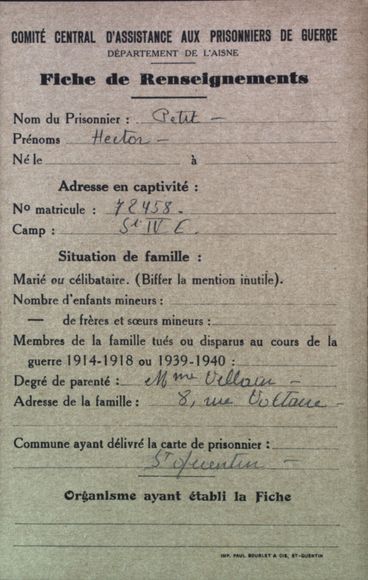 COMITÉ CENTRAL D'ASSISTANCE AUX PRISONNIERS DE GUERRE
DÉPARTEMENT DE L'AISNE
Fiche de Renseignements
Nom du Prisonnier : Petit —
Prénoms Hector —
Né le à
Adresse en captivité :
No matricule : 72458.
Camp : St IV E.
Situation de famille :
Marié ou célibataire. (Biffer la mention inutile).
Nombre d'enfants mineurs :
— de frères et sœurs mineurs :
Membres de la famille tués ou disparus au cours de la
guerre 1914-1918 ou 1939-1940 :
Degré de parenté : Mme Villain —
Adresse de la famille : 8, rue Voltaire —
Commune ayant délivré la carte de prisonnier :
St Quentin —
Organisme ayant établi la Fiche
IMP. PAUL BOURLET & CIE, ST-QUENTIN